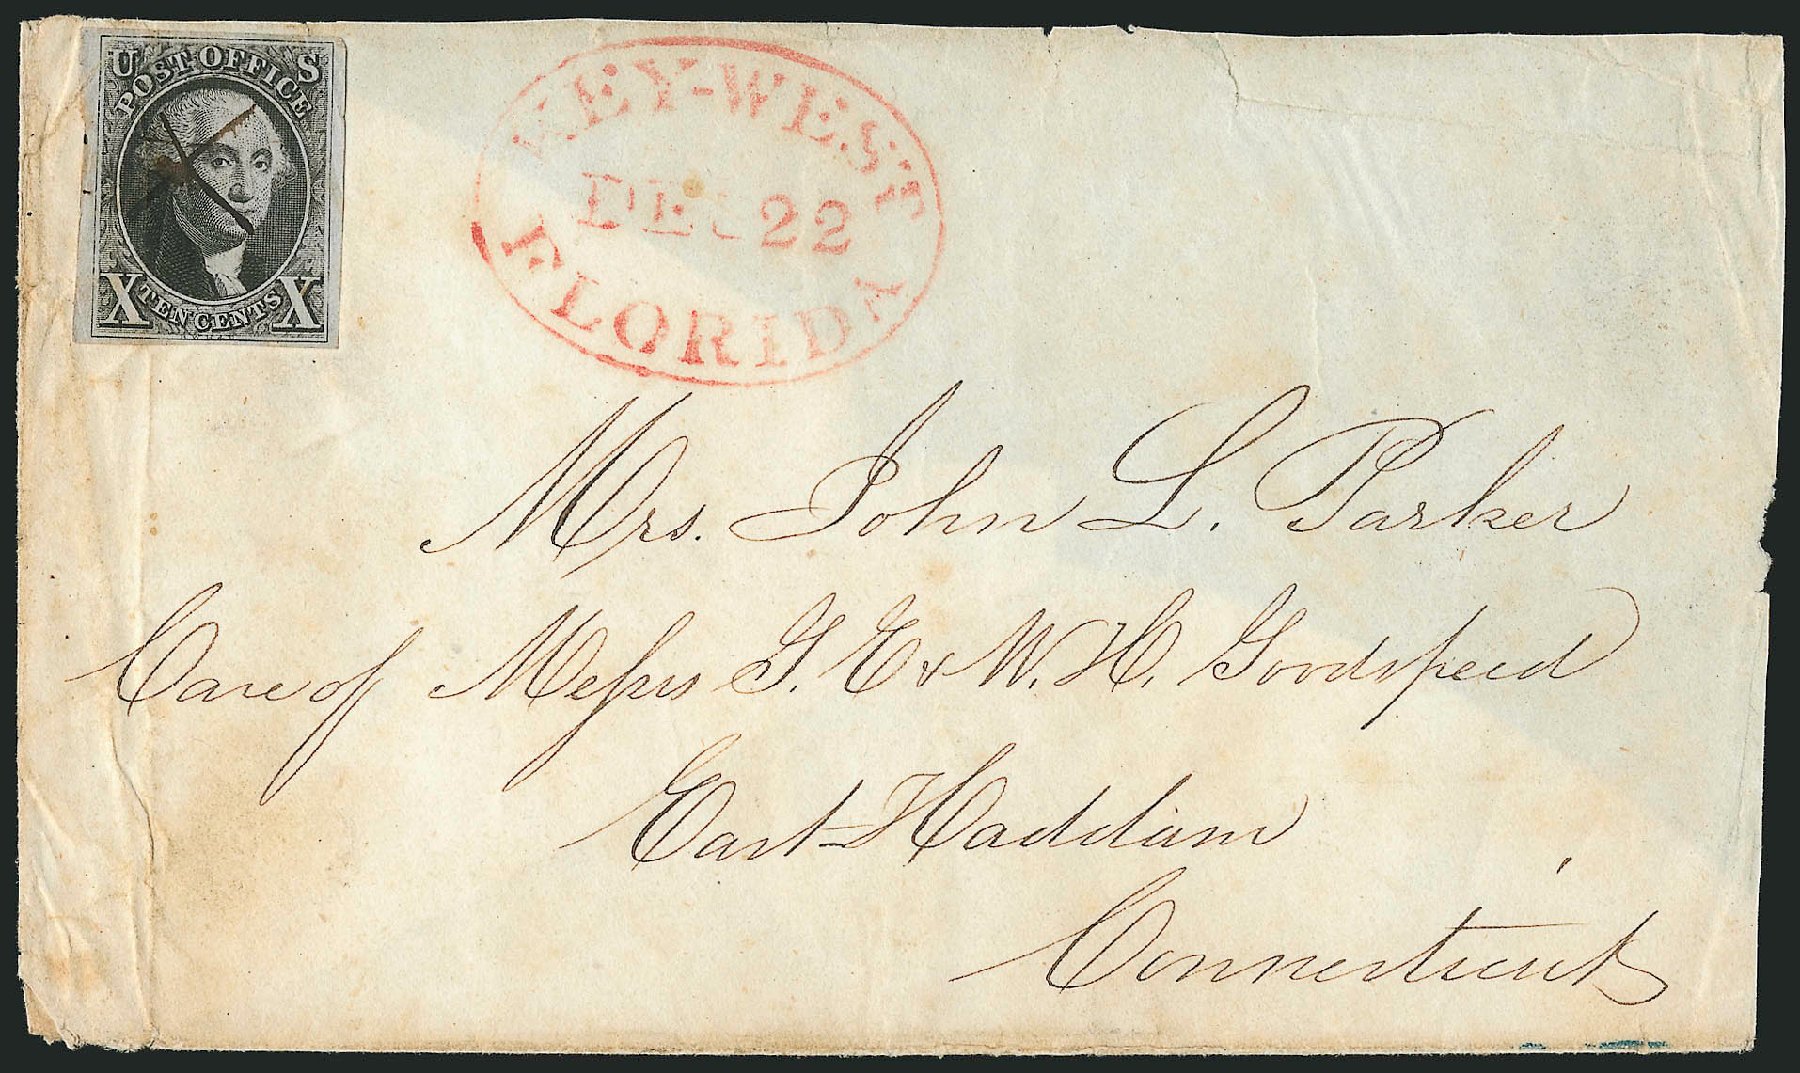 U S
POST OFFICE
X TEN CENTS X
KEY-WEST
DEC 22
FLORIDA
Mrs. John L. Parker
Care of Meſsrs G. E & W. H. Goodspeed
East-Haddam
Connecticut